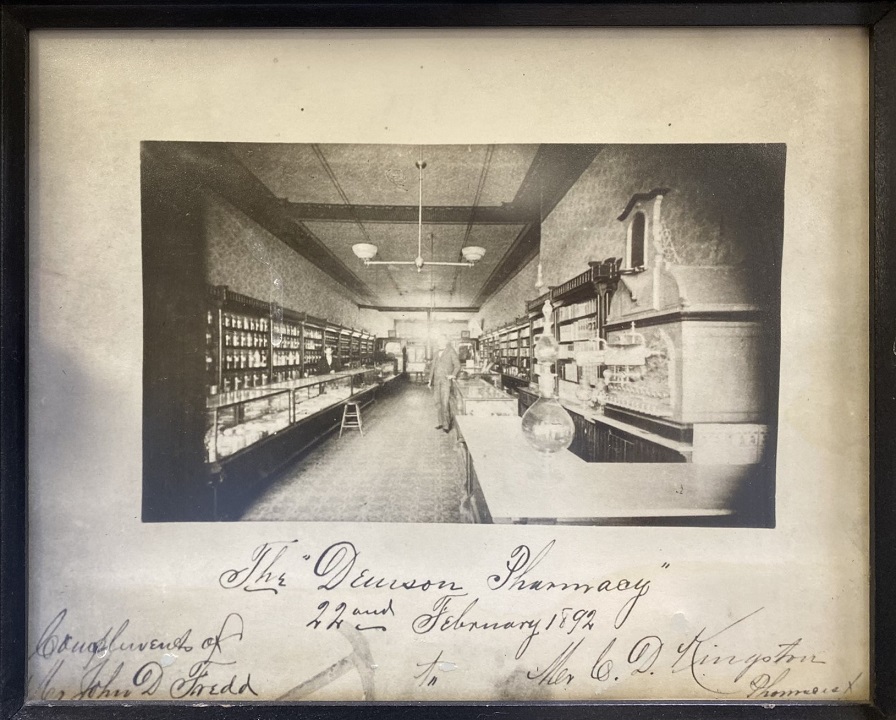 The "Denison Pharmacy"
22and February 1892
Compliments of
Mr John D Fredd
to
Mr C. D. Kingston
Pharmacist